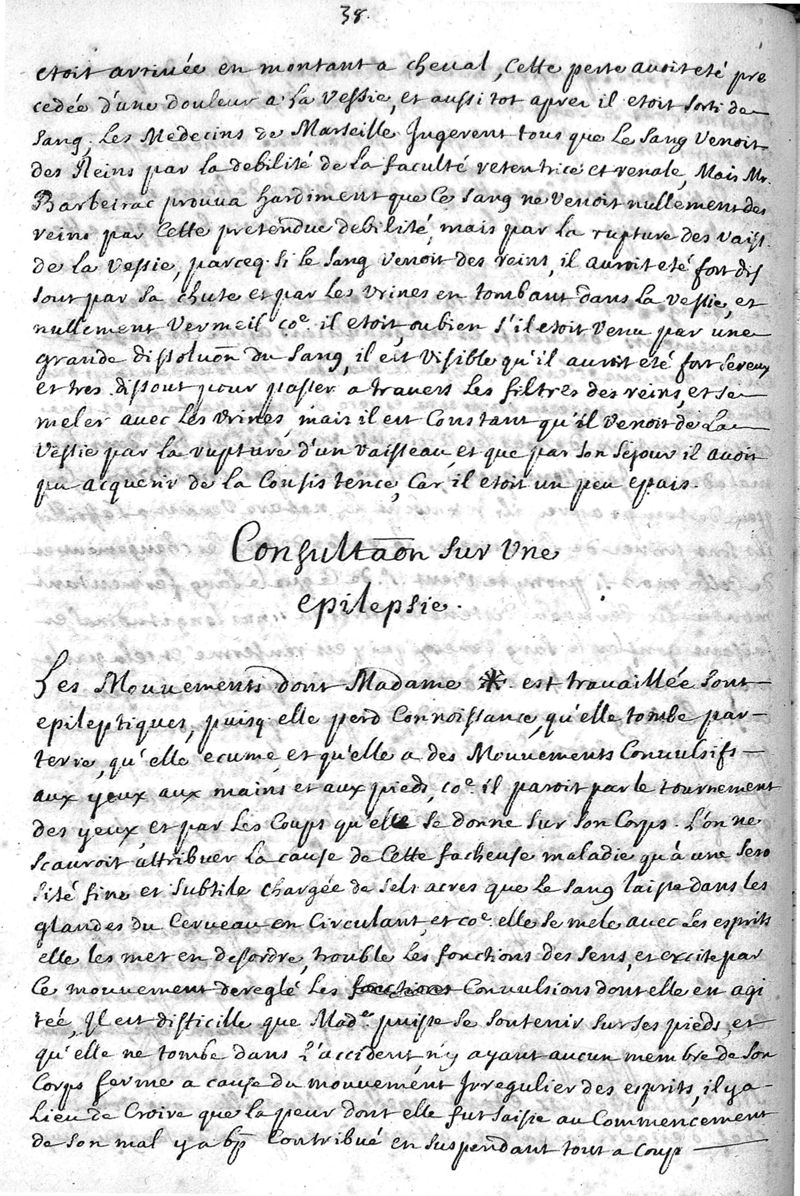 38.
etoit arrivée en montant a cheval, Cette perte avoit eté pre
cedée d'une douleur a La Vessie, et aussi tot apres il etoit sorti de
sang; Les Medecins de Marseille Jugerent tous que Le sang Venoit
des Reins par la debilité de La faculté retentrice et renale, Mais Mr.
Barbeirac prouva hardiment que Ce sang ne venoit nullement des
reins par Cette pretendue debilité, mais par la rupture des vaiss.
de La Vessie, parceq. si le sang venoit des reins, il auroit eté fort dis
sout par sa chute et par Les Vrines en tombant dans La Vessie, et
nullement Vermeil co.e il etoit, ou bien s'il etoit venu par une
grande dissoluōn du sang, il est Visible qu'il auroit eté fort sereux
et tres dissout pour passer a travers Les filtres des reins, et se
meler avec Les Vrines, mais il est Constant qu'il Venoit de La
Vessie par la rupture d'un vaisseau, et que par son sejour il avoit
pu acquerir de la Consistence, Car il etoit un peu epais.
Consultāōn sur Une
epilepsie.
Les Mouvements dont Madame * est travaillée sont
epileptiques, puisq. elle perd Connoissance, qu'elle tombe par
terre, qu'elle ecume, et qu'elle a des Mouvements Convulsifs
aux yeux aux mains et aux pieds, co.e il paroit par le tournement
des yeux, et par Les Coups qu'elle se donne sur son Corps. L'on ne
scauroit attribuer La cause de Cette facheuse maladie qu'à une sero
sité fine et subtile chargée de sels acres que Le sang laisse dans les
glandes du Cerveau en Circulant, et co.e elle se mele avec Les esprits
elle les met en desordre, trouble Les fonctions des sens, et excite par
Ce mouvement dereglé Les fonctions Convulsions dont elle est agi
tée, Il est difficille que Mad.e puisse se soutenir sur ses pieds, et
qu'elle ne tombe dans L'accident, n'y ayant aucun membre de son
Corps ferme a cause du mouvement Irregulier des esprits, il y a
Lieu de Croire que la peur dont elle fut saisie au Commencement
de son mal y a bp Contribué en suspendant tout a Coup